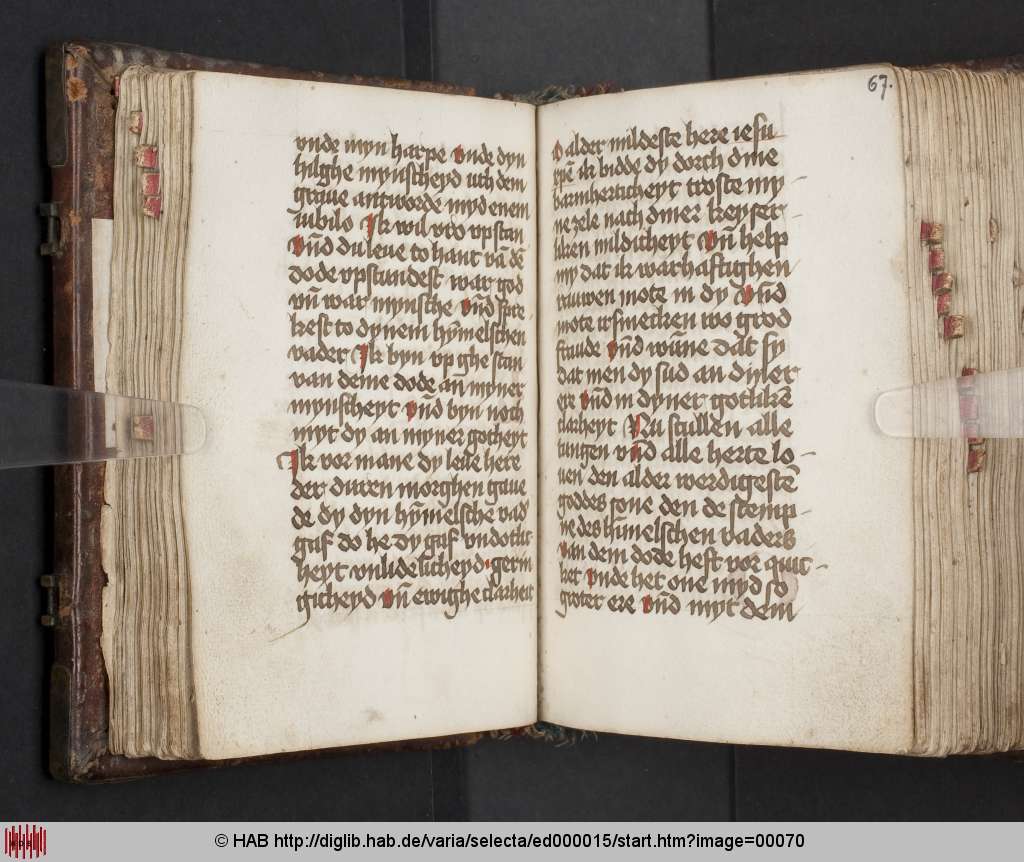 vnde myn harpe vnde dyn
hilghe mynscheyd uth dem
graue antworde myd enem
iubilo Ik wil vro vpstan
vn̄d du leue to hant va̅ dē
dode vpstundest war god
vn̄ war mynsche vn̄d spre
kest to dynem hy̅melschen
vader Ik byn vp ghe stan
van deme dode an̄ myner
mynscheyt vn̄d byn noch
myt dy an myner gotheyt
Ik vor mane dy leue here
der duren morghen gaue
de dy dyn hy̅melsche vad
gaf do he dy gaf vndotlic
heyt vnlidelicheyd gerin
gicheyd vn̄ ewighe clarheit
67.
O alder mildeste here iesu
xp̄e ik bidde dy dorch dine
barmherticheyt troste my
ne zele nach diner keyser
liken mildicheyt vn̄ help
my dat ik warhaftighen
vrauwen mote in dy vn̄d
mote irsmecken wo grod
fraude vn̄d wu̅ne dat sy
dat men dy sud an diner
ere vn̄d in dyner gotlikē
clarheyt Nu stullen alle
tungen vn̄d alle herte lo
uen den alder werdigestē
goddes sone den de stemp
ne des hi̅melschen vaders
van dem dode heft vor quic
ket vnde het one myd so
groter ere vn̄d myt dem
© HAB http://diglib.hab.de/varia/selecta/ed000015/start.htm?image=00070